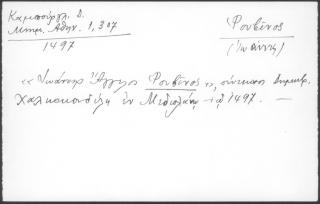 Καμπούρογλ. Δ.
Μνημ. Αθην. 1, 307
1497
Φουβένος
(Ἰωάννης)
"Ἰωάννης Ἄγγελος Φουβένος", σύντροφος Δημητρ.
Χαλκοκονδύλη ἐν Μεδιολάνῳ τῷ 1497. —